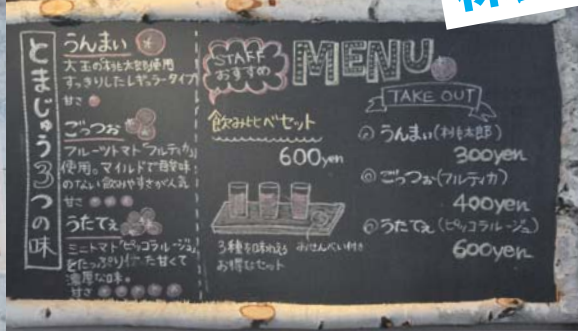 とまじゅう3つの味
うんまい
大玉の桃太郎使用
すっきりしたレギュラータイプ
甘さ
ごっつぉ
フルーツトマト「フルティカ」
使用。マイルドで酸味
のない飲みやすさが人気
甘さ
うたてぇ
ミニトマト「ピッコラルージュ」
をたっぷり使った甘くて
濃厚な味。
甘さ
STAFF
おすすめ
MENU
飲み比べセット
600yen
3種を味わえる おせんべい付き
お得なセット
TAKE OUT
うんまい(桃太郎)
300yen
ごっつぉ(フルティカ)
400yen
うたてぇ(ピッコラルージュ)
600yen